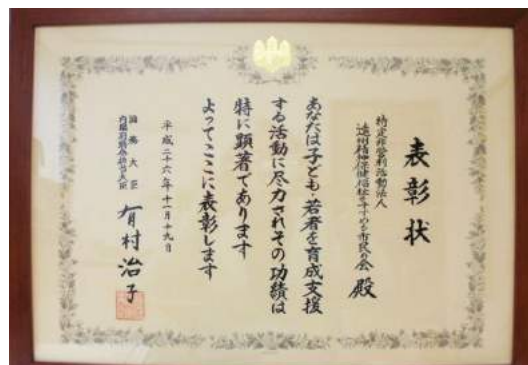 表彰状
特定非営利活動法人
遠州精神保健福祉をすすめる市民の会 殿
あなたは子ども・若者を育成支援
する活動に尽力されその功績は
特に顕著であります
よってここに表彰します
平成二十六年十一月十九日
国務大臣
内閣府特命担当大臣
有村治子